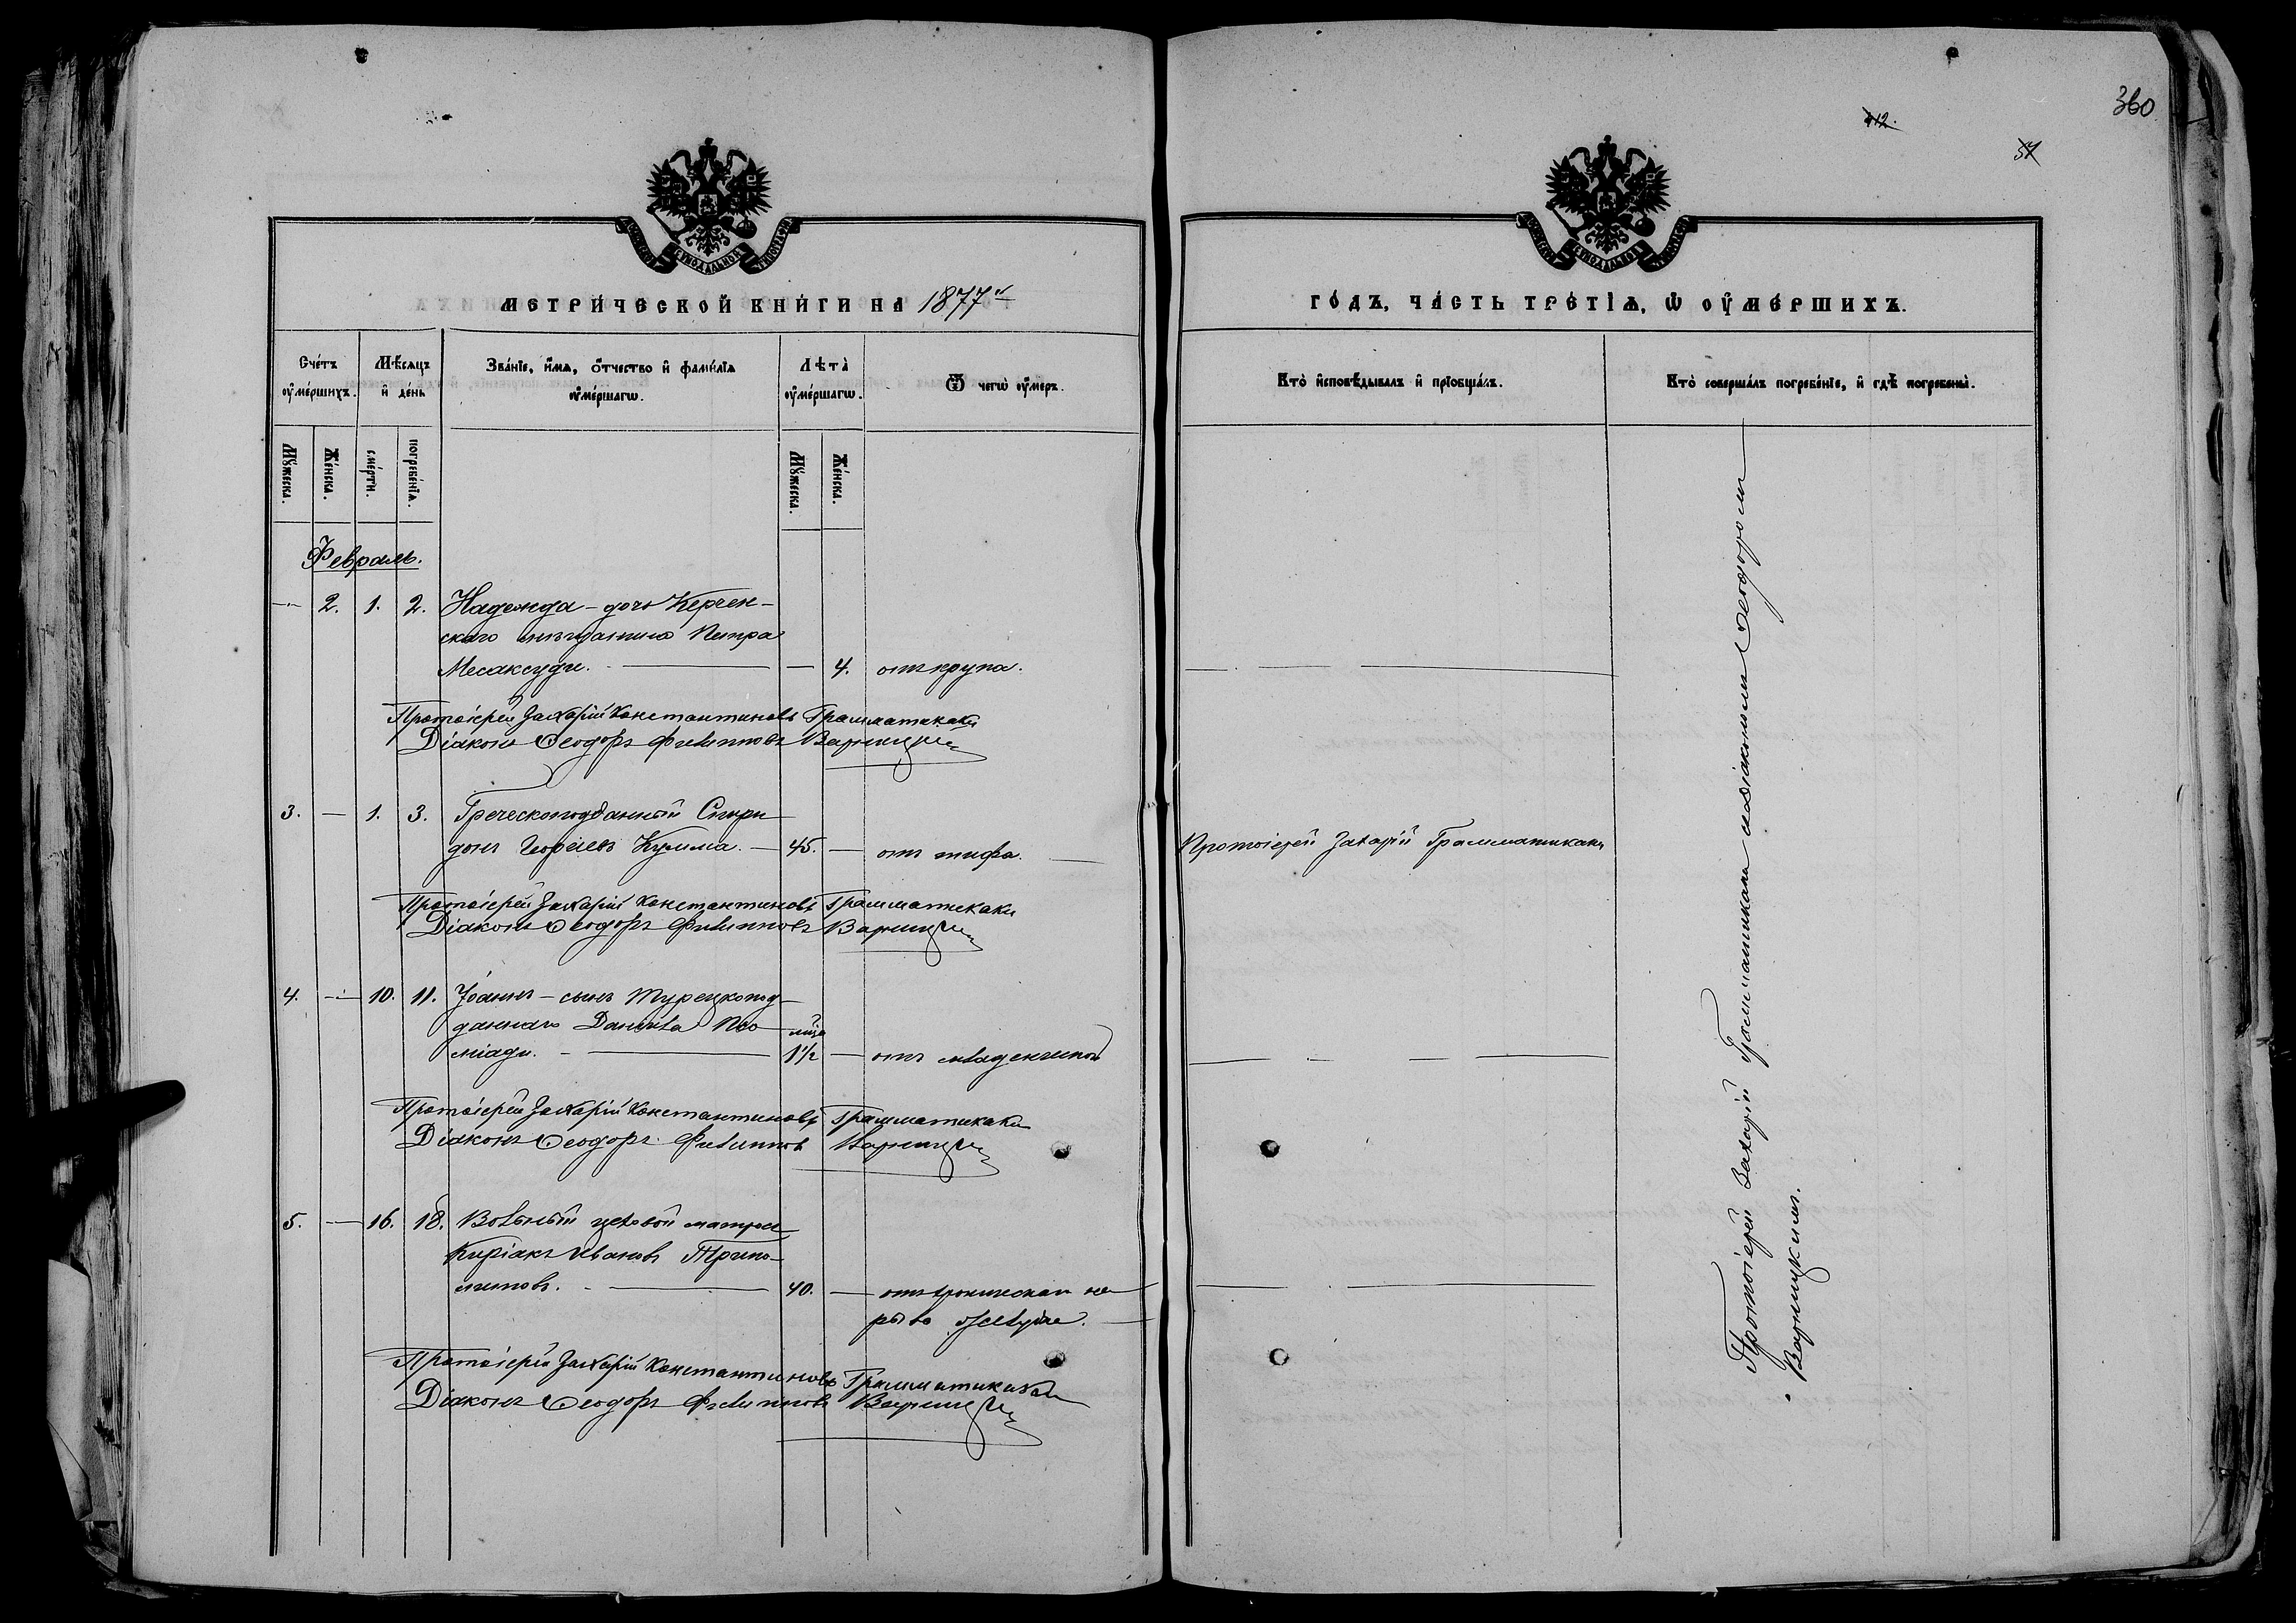 360
412.
57
СѴНОДАЛЬНОЙ
СѴНОДАЛЬНОЙ
МЕТРИ́ЧЕСКОЙ КНИ́ГИ НА 1877й
ГО́ДЪ, ЧА́СТЬ ТРЕ́ТІѦ, Ѡ ОУ҆МЕ́РШИХЪ.
Сче́тъ оу҆ме́ршихъ.
Мѣ́сяцъ и҆ де́нь
Зва́нїе, и҆́мѧ, ѻ҆́тчество и҆ фамѝлїѧ оу҆ме́ршагѡ.
Лѣ́та̀ оу҆ме́ршагѡ.
Ѿ чегѡ̀ оу҆́меръ.
Кто̀ и҆сповѣ́дывалъ и҆ прїобща́лъ.
Кто̀ соверша́лъ погребе́нїе, и҆ гдѣ̀ погребены̀.
Мꙋ́жеска.
Же́нска.
сме́рти.
погребе́нїѧ.
Мꙋ́жеска.
Же́нска.
Февраль.
— 2. 1. 2. Надежда - дочь Керчен-
скаго мѣщанина Петра
Месаксуди. — — 4. отъ крупа.
Протоіерей Захарій Константиновъ Грамматикаки
Діаконъ Ѳеодоръ Филипповъ Варницкій
3. — 1. 3. Греческоподданный Спири
донъ Георгіевъ Кумма. — 45. — отъ тифа. — Протоіерей Захарій Грамматикаки
Протоіерей Захарій Константиновъ Грамматикаки
Діаконъ Ѳеодоръ Филипповъ Варницкій
4. — 10. 11. Іоаннъ - сынъ Турецкопод-
даннаго Даніила Псо мѣс
міади. — 1½ — отъ младенческой
Протоіерей Захарій Константиновъ Грамматикаки
Діаконъ Ѳеодоръ Филипповъ Варницкій
5. — 16. 18. Вольный цеховой матросъ
Киріакъ Ивановъ
40. — отъ хроническаго на
рыва
Протоіерей Захарій Константиновъ Грамматикаки
Діаконъ Ѳеодоръ Филипповъ Варницкій
Протоіерей Захарій Грамматикаки съ діакономъ Ѳеодоромъ
Варницкимъ.